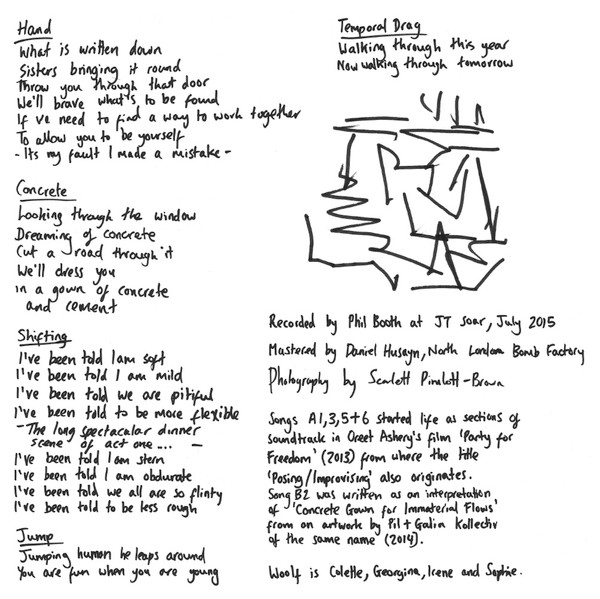 Hand
What is written down
Sisters bringing it round
Throw you through that door
We'll brave what's to be found
If we need to find a way to work together
To allow you to be yourself
- Its my fault I made a mistake -
Concrete
Looking through the window
Dreaming of concrete
Cut a road through it
We'll dress you
in a gown of concrete
and cement
Shifting
I've been told I am soft
I've been told I am mild
I've been told we are pitiful
I've been told to be more flexible
- The long spectacular dinner
scene of act one.... -
I've been told I am stern
I've been told I am obdurate
I've been told we all are so flinty
I've been told to be less rough
Jump
Jumping human he leaps around
You are fun when you are young
Temporal Drag
Walking through this year
Now walking through tomorrow
Recorded by Phil Booth at JT Soar, July 2015
Mastered by Daniel Husayn, North London Bomb Factory
Photography by Scarlett Pimlott-Brown
Songs A1,3,5+6 started life as sections of
soundtrack in Oreet Ashery's film 'Party for
Freedom' (2013) from where the title
'Posing/Improvising' also originates.
Song B2 was written as an interpretation
of 'Concrete Gown for Immaterial Flows'
from an artwork by Pil + Galia Kollectiv
of the same name (2014).
Woolf is Colette, Georgina, Irene and Sophie.